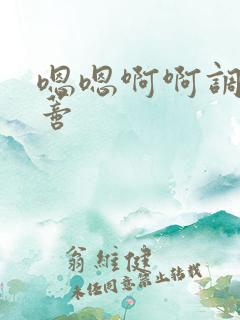 嗯嗯啊啊調
善
翁維健
未经同意禁止转载